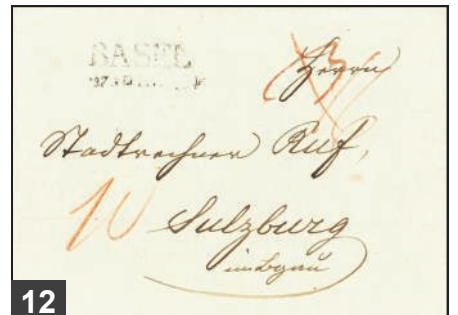 BASEL
Herrn
Stadtrechner Ruf,
10
Sulzburg
12